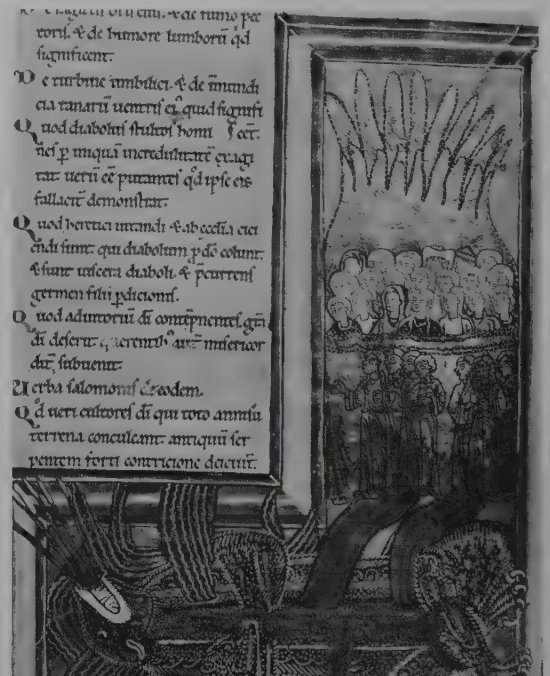 & de fumo pec
toris. & de humore lumborū qd
significent.
De turbine umbilici. & de īmundi
cia uentris eiꝰ quid signifi
Quod diabolus stultos homi cent.
nes ꝑ iniquā incredulitatē exagi
tat uerū eē putantes qd ipse eis
fallacit̄ demonstrat.
Quod heretici uitandi & ab eccl̄ia eici
endi sunt. qui diabolum ꝓ dō colunt.
& sunt uiscera diaboli. & p̄currens
germen filii ꝑdicionis.
Quod adiutoriū dī contēpnentes grā
dī deserit. querentibꝰ aut̄ misericor
dit̄ subuenit.
Uerba salomonis de eodem.
Qd ueri cultores dī qui toto annisu
terrena conculcant. antiquū ser
pentem forti contricione deiciunt.